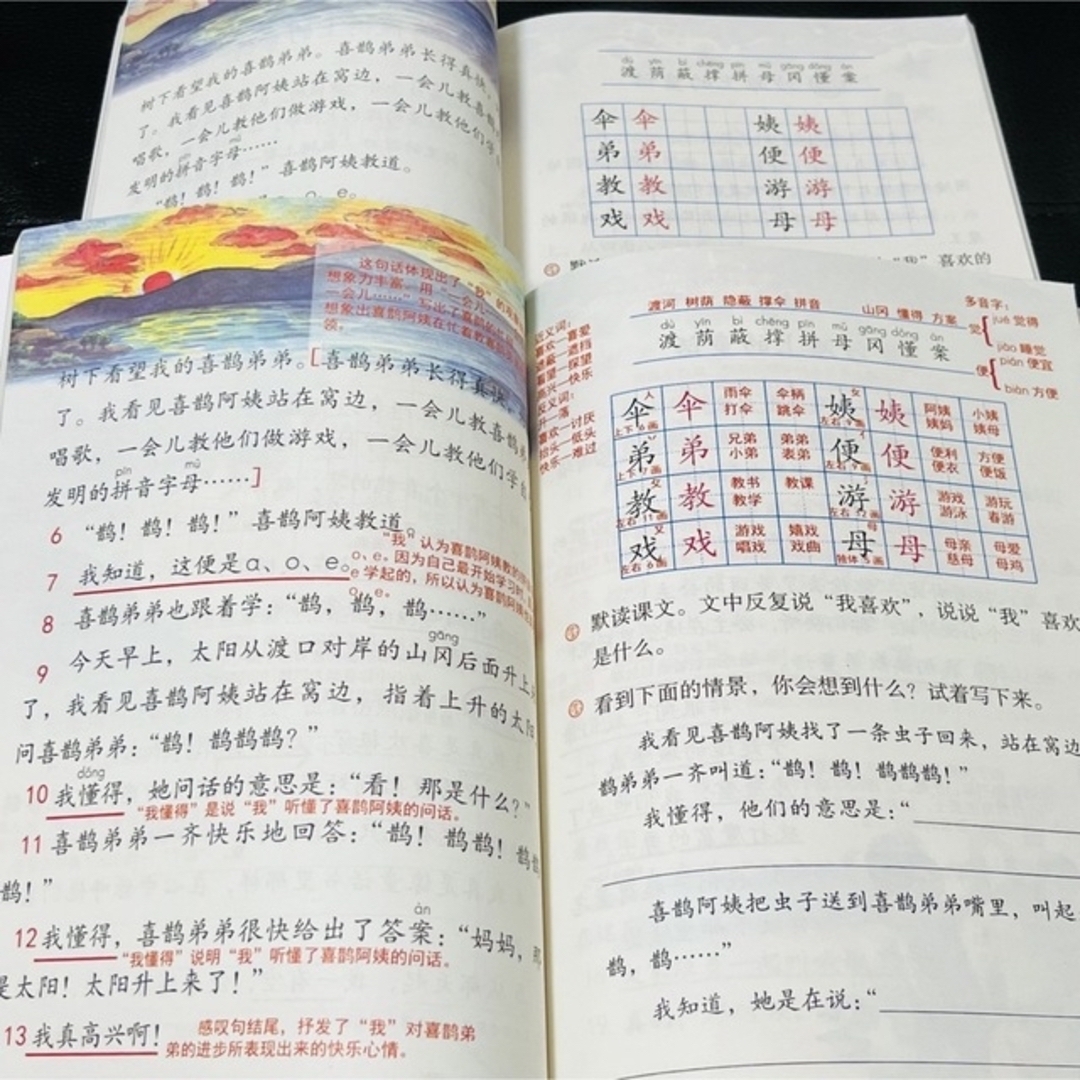 树下看望我的喜鹊弟弟。喜鹊弟弟长得真快
了。我看见喜鹊阿姨站在窝边，一会儿教喜
唱歌，一会儿教他们做游戏，一会儿教他们学
pīn mǔ
发明的拼音字母……
“鹊！鹊！鹊！”喜鹊阿姨教道。
o、e。
dù yīn bì chēng pīn mǔ gāng dǒng àn
渡 荫 蔽 撑 拼 母 冈 懂 案
伞 伞 姨 姨
弟 弟 便 便
教 教 游 游
戏 戏 母 母
默读
“我”喜欢的
这句话体现出了“我”的
想象力丰富。用“一会儿……
一会儿……”写出了喜鹊
想象出喜鹊阿姨在忙着教喜鹊
领。
树下看望我的喜鹊弟弟。[喜鹊弟弟长得真快
了。我看见喜鹊阿姨站在窝边，一会儿教喜鹊
唱歌，一会儿教他们做游戏，一会儿教他们学自
pīn mǔ
发明的拼音字母……]
6 “鹊！鹊！鹊！”喜鹊阿姨教道。
“我”认为喜鹊阿姨教的
7 我知道，这便是ɑ、o、e。
o、e。因为自己最开始学习时
e学起的，所以认为喜鹊阿姨
o、e。
8 喜鹊弟弟也跟着学：“鹊，鹊，鹊……”
gāng
9 今天早上，太阳从渡口对岸的山冈后面升上
了，我看见喜鹊阿姨站在窝边，指着上升的太阳
问喜鹊弟弟：“鹊！鹊鹊鹊？”
dǒng
10 我懂得，她问话的意思是：“看！那是什么？”
“我懂得”是说“我”听懂了喜鹊阿姨的问话。
11 喜鹊弟弟一齐快乐地回答：“鹊！鹊鹊！鹊
鹊！”
àn
12 我懂得，喜鹊弟弟很快给出了答案：“妈妈，那
“我懂得”说明“我”听懂了喜鹊阿姨的问话。
是太阳！太阳升上来了！”
13 我真高兴啊！
感叹句结尾，抒发了“我”对喜鹊弟
弟的进步所表现出来的快乐心情。
渡河 树荫 隐蔽 撑伞 拼音 山冈 懂得 方案
多音字：
觉 jué 觉得
jiào 睡觉
便 pián 便宜
biàn 方便
dù yīn bì chēng pīn mǔ gāng dǒng àn
渡 荫 蔽 撑 拼 母 冈 懂 案
反义词：
喜欢—喜爱
遮挡
探望
高兴—快乐
反义词：
升—落
喜欢—讨厌
抬头—低头
快乐—难过
伞 伞 雨伞 伞柄 打伞 跳伞 人 上下 6画
姨 姨 阿姨 小姨 姨妈 姨母 女 左右 9画
弟 弟 兄弟 弟弟 小弟 表弟 上下 7画
便 便 便利 方便 便衣 便饭 左右 9画
教 教 教书 教课 教学 左右 11画
游 游 游戏 游玩 游泳 春游 左右
戏 戏 游戏 嬉戏 唱戏 戏曲 又 左右 6画
母 母 母亲 母爱 慈母 母鸡 母 独体 5画
默读课文。文中反复说“我喜欢”，说说“我”喜欢
是什么。
看到下面的情景，你会想到什么？试着写下来。
我看见喜鹊阿姨找了一条虫子回来，站在窝边
鹊弟弟一齐叫道：“鹊！鹊！鹊鹊鹊！”
我懂得，他们的意思是：“
喜鹊阿姨把虫子送到喜鹊弟弟嘴里，叫起
鹊，鹊……”
我知道，她是在说：“